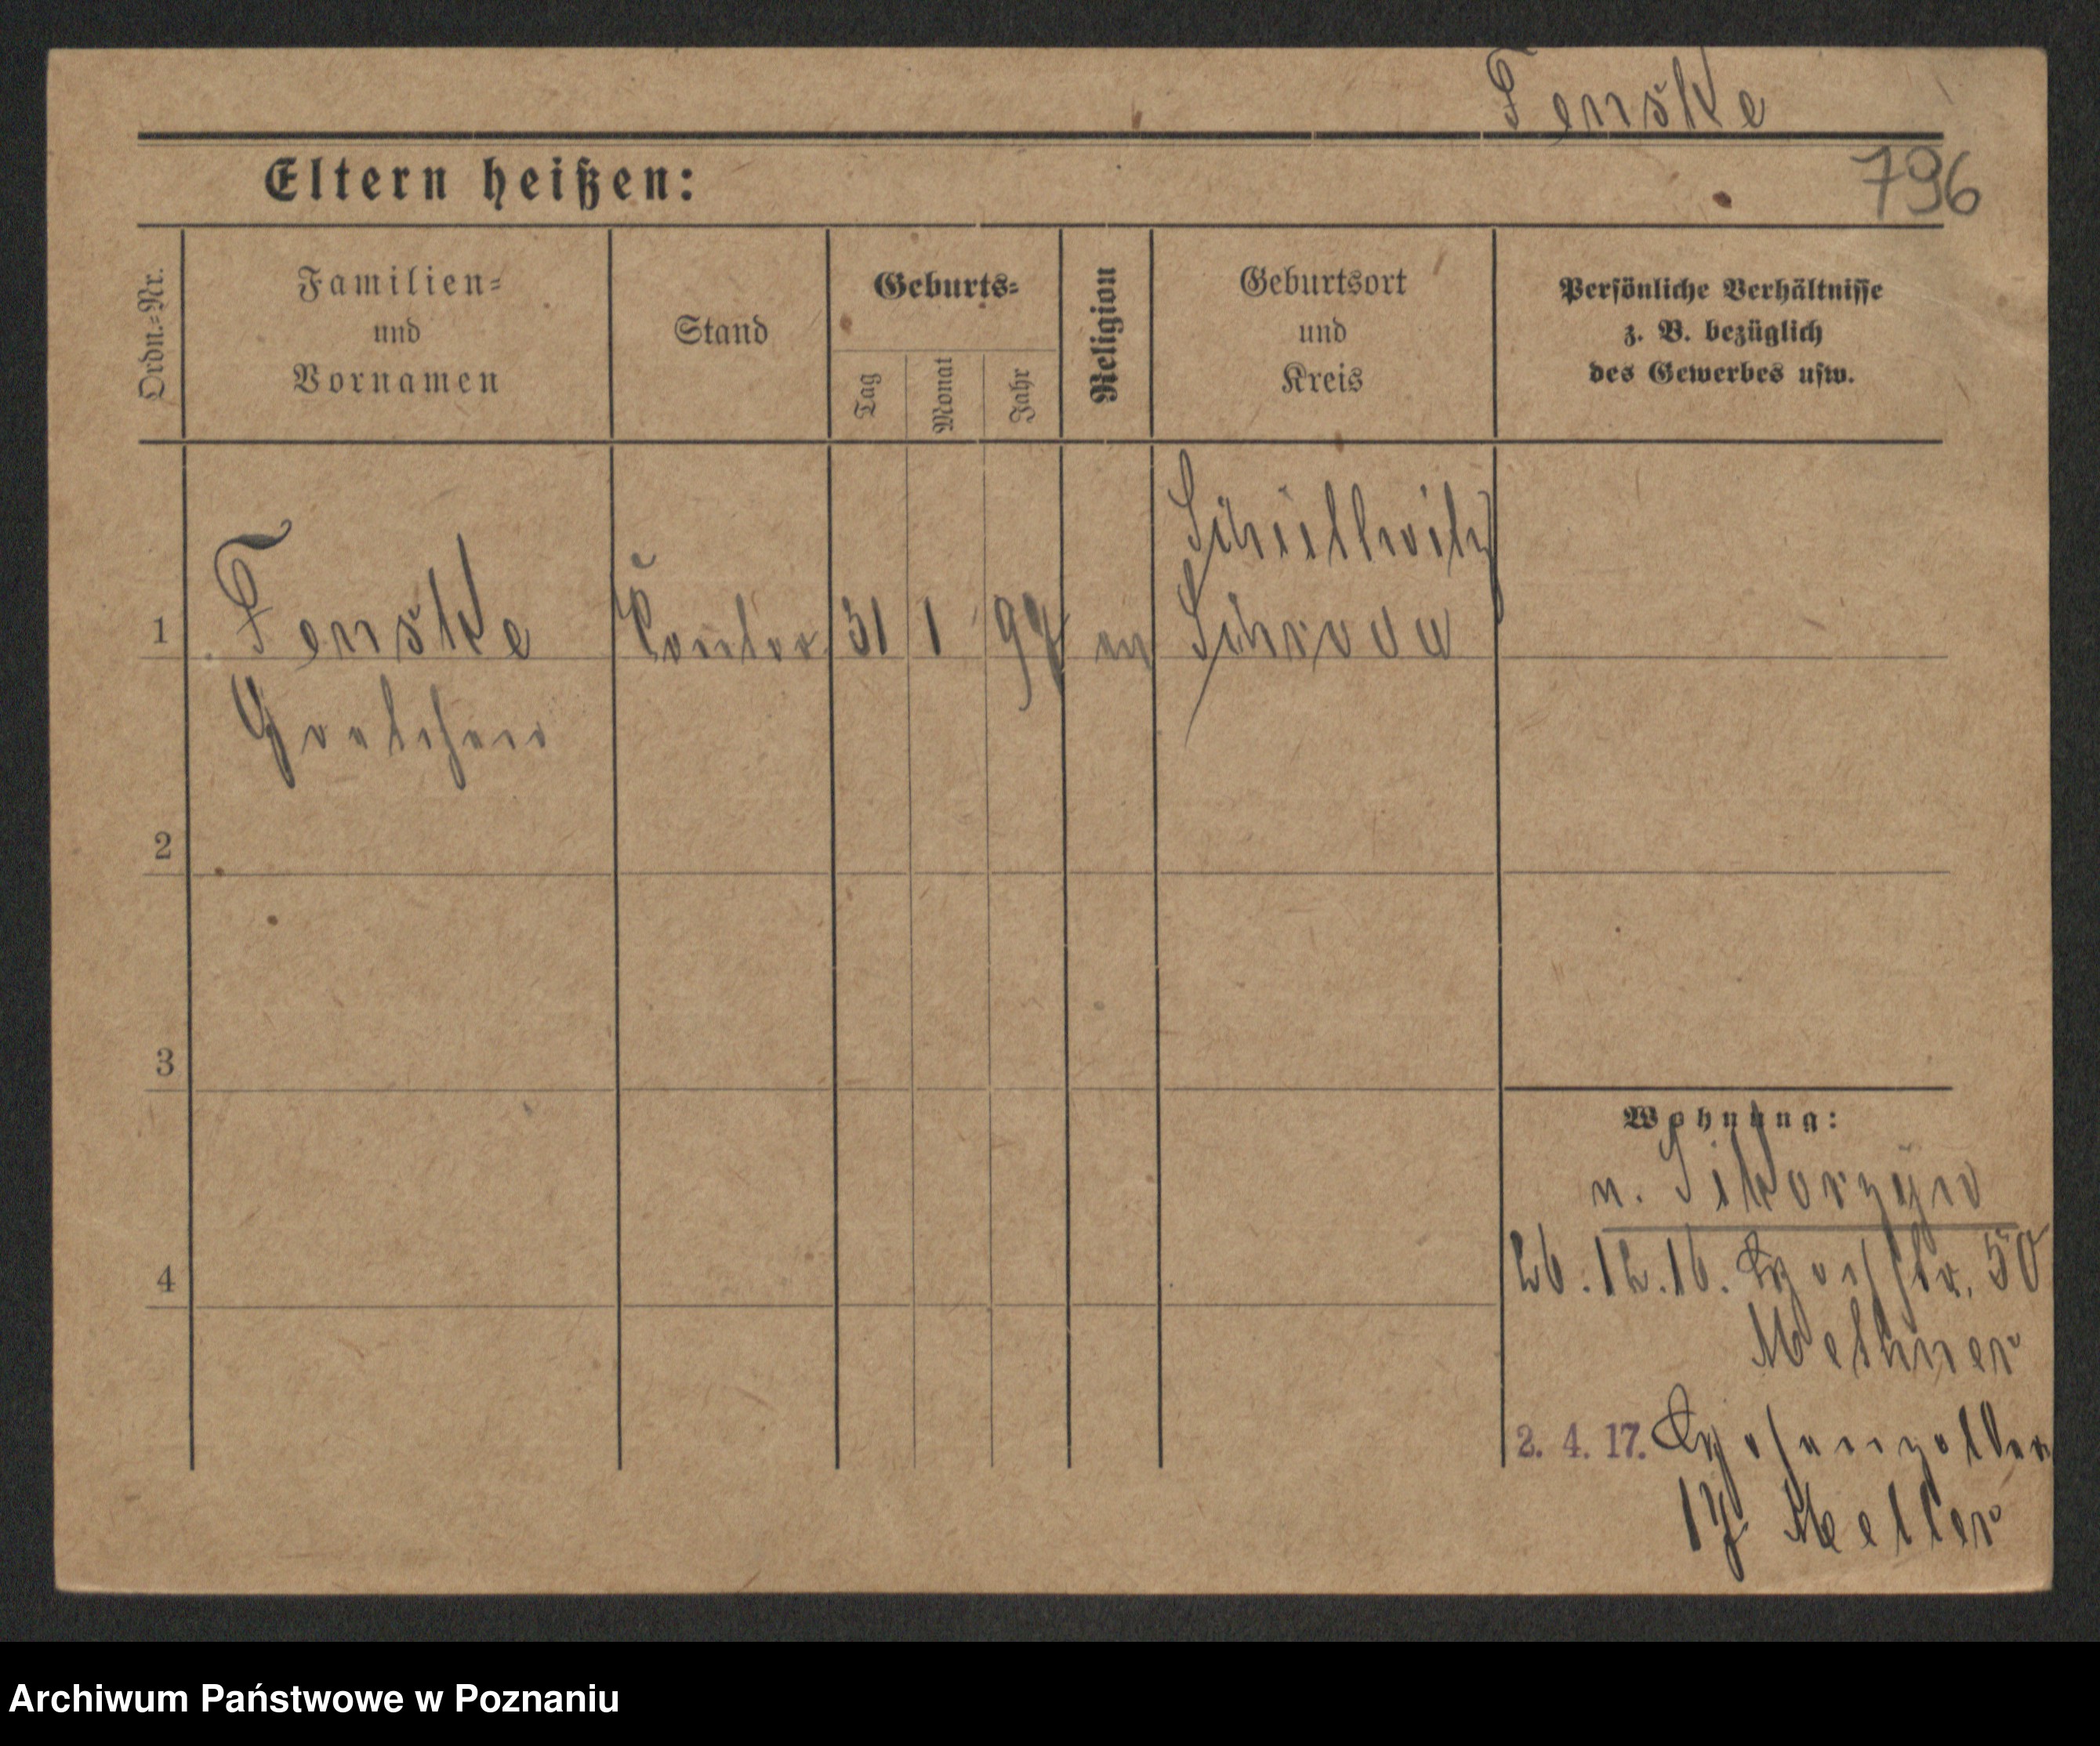 Fenske
Eltern heißen:
796
Ordn.-Nr.
Familien-
und
Vornamen
Stand
Geburts-
Tag
Monat
Jahr
Religion
Geburtsort
und
Kreis
Persönliche Verhältnisse
z. B. bezüglich
des Gewerbes usw.
1
Fenske
31 1 97 ev
Schroda
Gretchen
2
3
4
Wohnung:
n. Sikorzyn
26.12.16. 50
2. 4. 17.
17
Archiwum Państwowe w Poznaniu